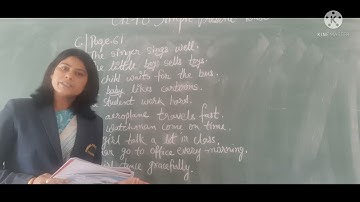 Simple present
C/Page 51
The singer sings well.
The little boy sells toys.
child waits for the bus.
baby likes cartoons.
student work hard.
aeroplane travels fast.
watchman come on time.
girl talk a lot in class.
go to office every morning.
dance gracefully.
KINEMASTER